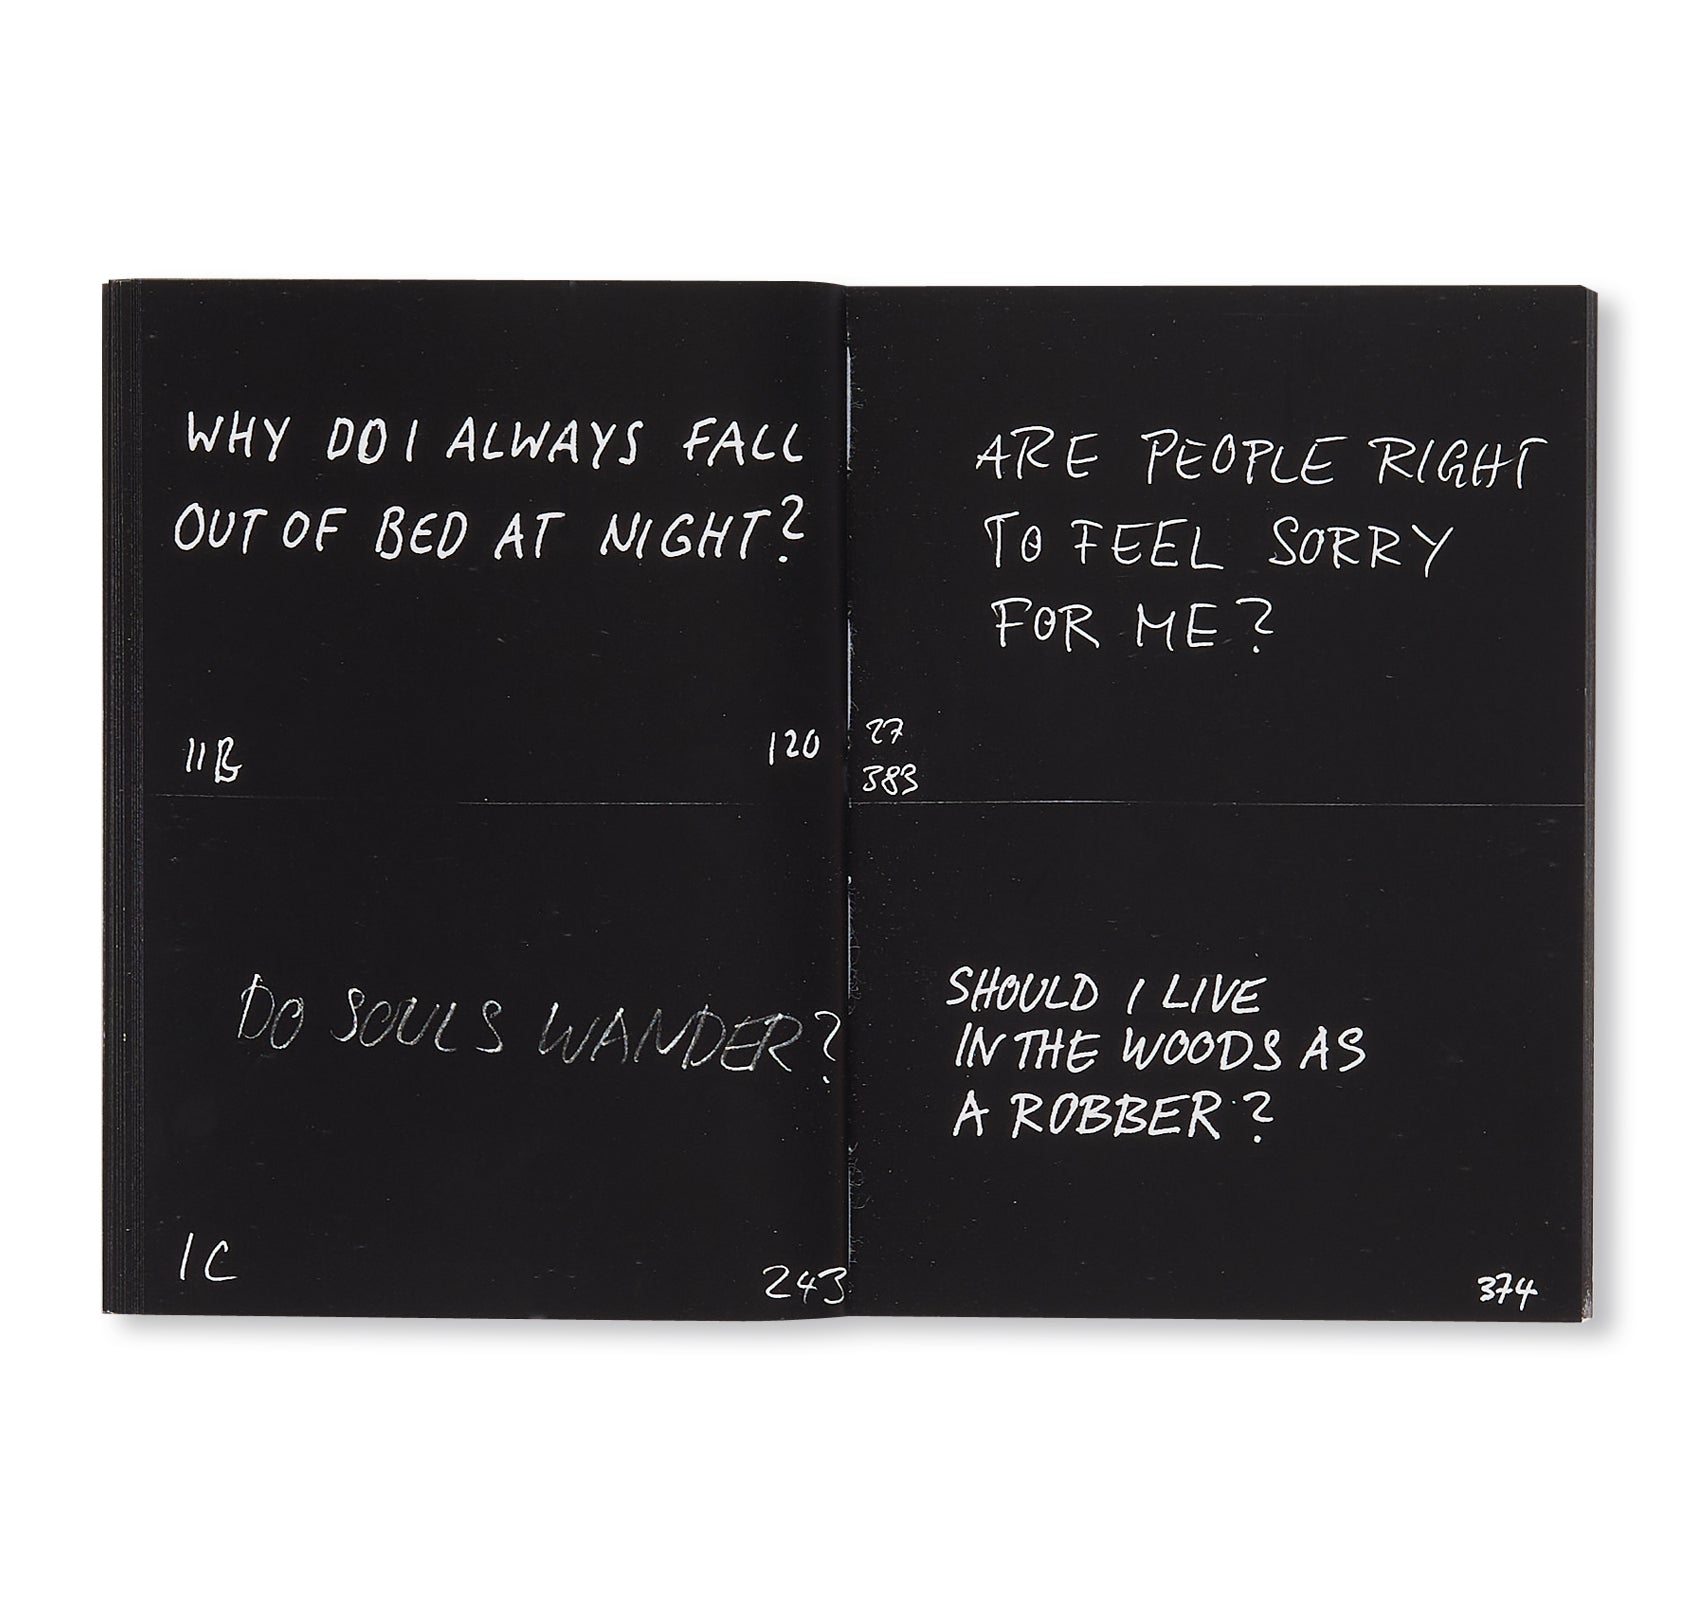 WHY DO I ALWAYS FALL
OUT OF BED AT NIGHT?
11B
120
DO SOULS WANDER?
1C
243
ARE PEOPLE RIGHT
TO FEEL SORRY
FOR ME?
27
383
SHOULD I LIVE
IN THE WOODS AS
A ROBBER?
374